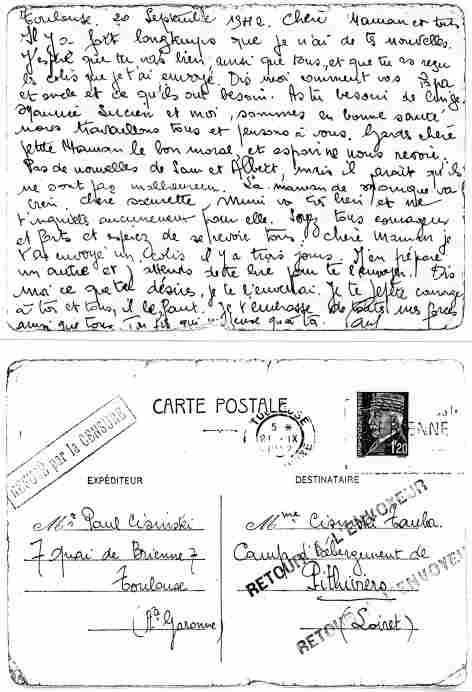 Toulouse. 20 Septembre 1942. Chère Maman et tous
Il y a fort longtemps que je n'ai de tes nouvelles.
J'espère que tu vas bien, ainsi que tous, et que tu as reçu
le colis que je t'ai envoyé. Dis moi comment vas Papa
et oncle et ce qu'ils ont besoin. As tu besoin de linge
Maurice Lucien et moi, sommes en bonne santé
nous travaillons tous et pensons à vous. Garde chère
petite Maman le bon moral, et espoir de nous revoir.
Pas de nouvelles de Sam et Albert, mais il paraît qu'ils
ne sont pas malheureux. La maman de Monique va
bien. Chère sœurette, Mimi va très bien et ne
t'inquiète aucunement pour elle. Soyez tous courageux
et forts et espérez de se revoir tous. Chère Maman je
t'ai envoyé un colis il y a trois jours. J'en prépare
un autre et j'attends de te lire pour te l'envoyer. Dis
moi ce que tu désires, je te l'enverrai. Je te répète courage
à toi et tous, il le faut. Je t'embrasse de toutes mes forces
ainsi que tous. Ton fils qui pense qu'à toi. Paul
CARTE POSTALE
TOULOUSE
5 *
21 -IX
1,20
IENNE
REFUSÉ par la CENSURE
EXPÉDITEUR
Mr Paul Cisinski
7 Quai de Brienne 7
Toulouse
(Hte Garonne)
DESTINATAIRE
Mme Cisinski Tauba
Camp d'hébergement de
Pithiviers
(Loiret)
RETOUR A L'ENVOYEUR
RETOUR A L'ENVOYEUR